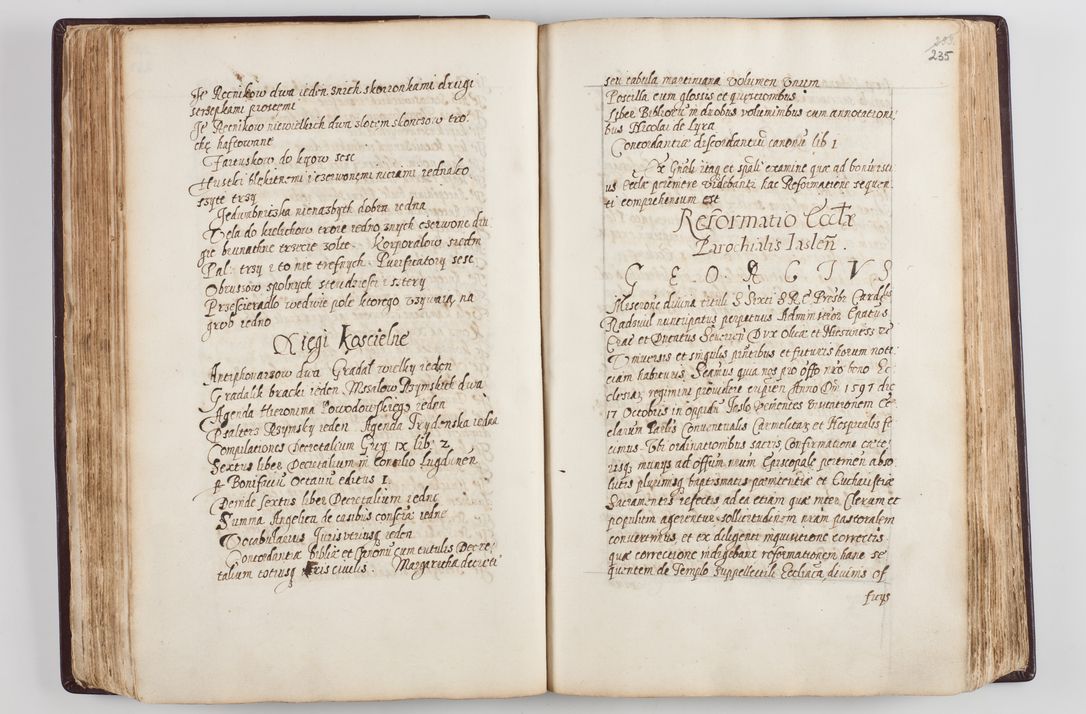 Jt Ręcnikow dwa ieden znich skoronkami drugi
strzępkami prostemi
Jt Ręcnikow niewielkich dwa zlotem skonczow tro
chę haftowane
Fartuskow do kijow sesc
Hustki blękitnemi i czerwonemi niciami iednako
szyte trzy
Jedumbniczka nienazbyth dobra iedna
Vela do kielichow troie iedno znych czerwone dru
gie brunathne trzecie zolte. Korporalow siedm
Pal. trzy i to nie trefnych. Purificatorÿ sesc
Obrusow spolnych siendziesi i sztery
Przescieradlo wedwie pole ktorego vzywaią na
grob iedno
Xięgi Koscielne
Antiphonarzow dwa Gradał wielky ieden
Gradalik bracki ieden. Mszalow Rzymskich dwa
Agenda Hieronima Powodowskiego ieden
Psalterz Rzymsky ieden Agenda Trydenska iedna
Compilationes Decretalium Greg ix lib 2
Sextus liber Decretalium in Concilio Lugdunen
p Bonifaciu Octauu editus 1.
Deinde sextus liber Decretalium iedne
Summa Angelica de casibus consciæ iedne
Vocabularius Juris vtriusq ieden
Concordantiæ Bibliæ et Canonu cum tutulis Decre,
talium totiusq Iuris ciuilis. Margaritha decreti
233
235
seu tabula martiniana Volumen Vnum
Postilla cum glossis et quæstionibus
Liber Bibliorum in duobus voluminibus cum annotationi
bus Nicolai de Lyra
Concordantiæ discordantiu canonu lib 1
Ex Gnali itaq et spali examine quæ ad boni
us Ecclæ pertinere videbantr hac Reformatione sequen
ti comprehensum est
Reformatio Ecclæ
Parochialis Iaslen.
GEORGIVS
Miseraone diuina tituli S Sixti S R E Presbr Cardlis
Radziuil nuncupatus perpetuus Administror Epatus
Crac et Ducatus Seuerien Dvx Olicæ et Nieswiess &c
Vniuersis et singulis pntibus et futuris horum noti
ciam habituris. Eeamus quia nos pro offo nro bono Ec
clesiaz regimini prouidere cupien Anno Dni 1597 die
17 Octobris in oppidu Jaslo Venientes visitationem Ec
clarum Parlis Conuentualis Carmelitaz et Hospitalis fe
cimus. Vbi ordinationibus sacris Confirmatione cæte
risq munijs ad offum nrum Episcopale pertinen abso
lutis plurimisq baptismatis pœnitentiæ et Eucharistiæ
Sacramentis refectis ad ea etiam quæ inter Clerum et
populum agerentur, sollicitudinem nram pastoralem
conuertimus et ex diligenti inquisitione correctis
quæ correctione indigebant reformationem hanc se
quentem de Templo Suppellectili Ecclıaca diuinis of
ficijs